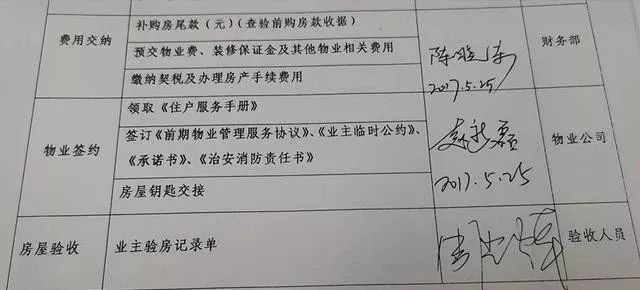 费用交纳
补购房尾款（元）（查验前购房款收据）
预交物业费、装修保证金及其他物业相关费用
缴纳契税及办理房产手续费用
2017.5.25
财务部
物业签约
领取《住户服务手册》
签订《前期物业管理服务协议》、《业主临时公约》、
《承诺书》、《治安消防责任书》
房屋钥匙交接
2017.5.25
物业公司
房屋验收
业主验房记录单
验收人员